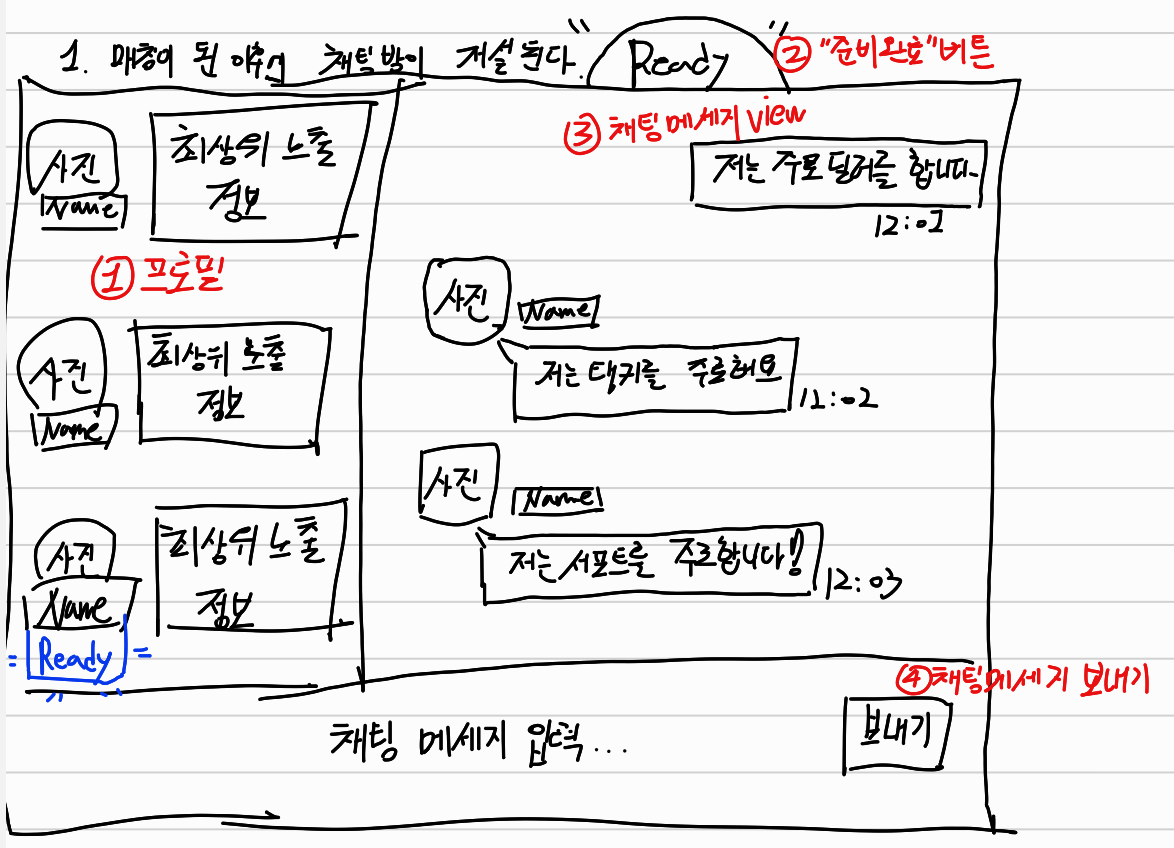 1. 매칭이 된 이후에 채팅방이 개설된다.
Ready
② "준비완료"버튼
사진
Name
최상위 노출
정보
① 프로필
사진
Name
최상위 노출
정보
사진
Name
Ready
최상위 노출
정보
③ 채팅메세지 view
저는 주로 딜러를 합니다.
12:01
사진
Name
저는 탱커를 주로해요
12:02
사진
Name
저는 서포트를 주로합니다!
12:03
④ 채팅메세지 보내기
채팅 메세지 입력...
보내기